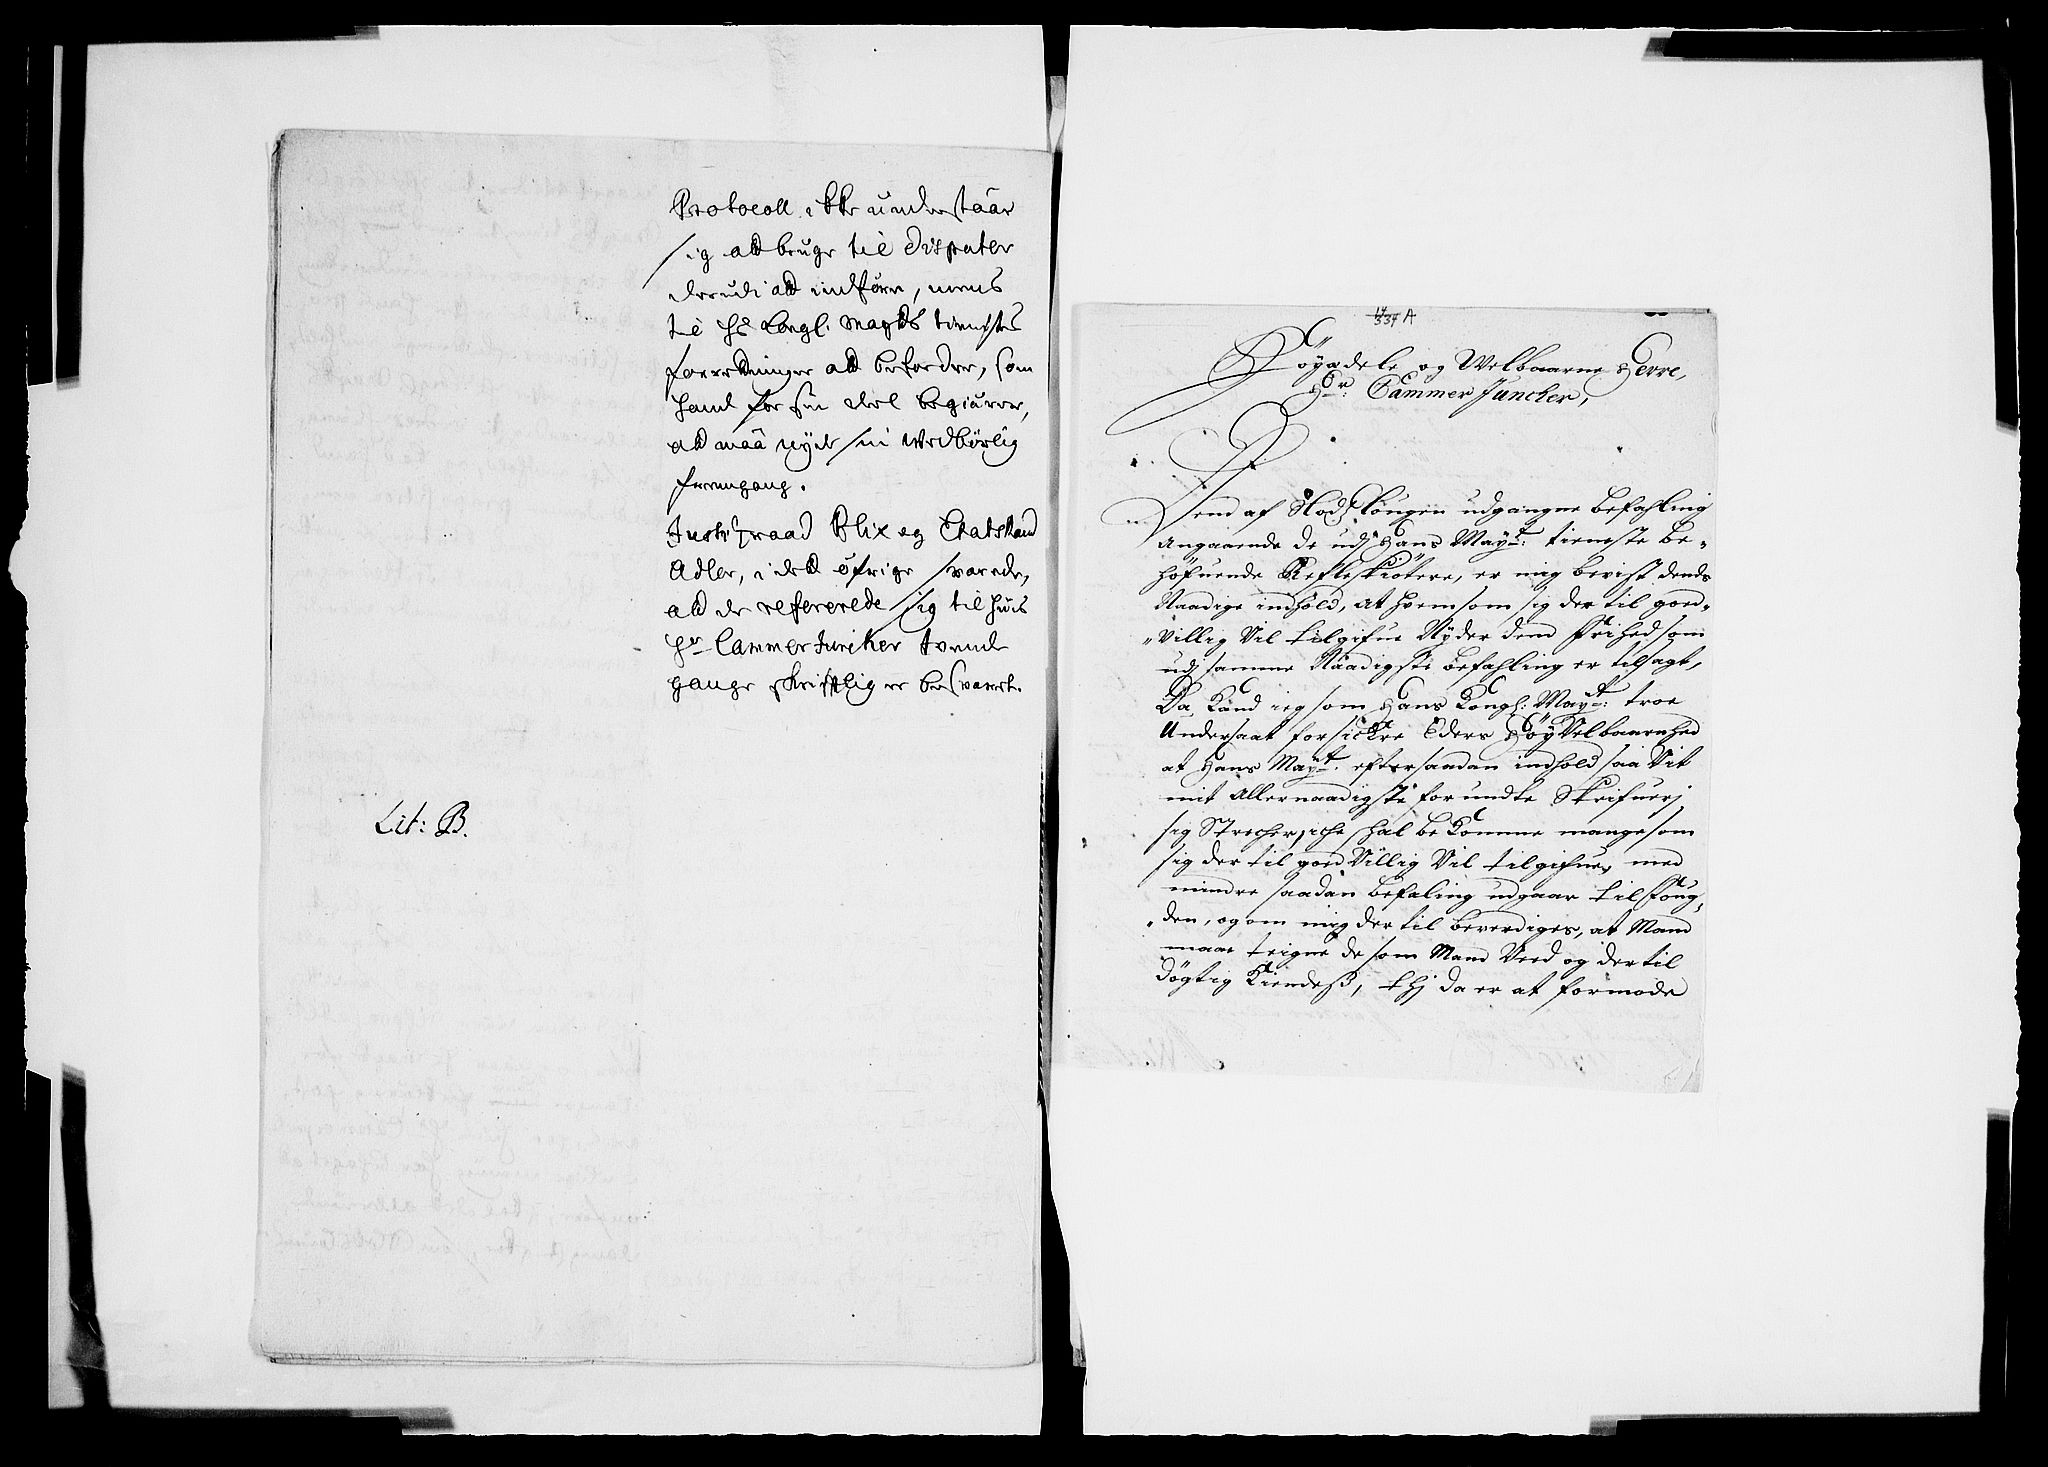 Protocoll ikke understaar
sig ald bruge til Disputer
derudi ald indføre, mens
til Hs Kongl. Maytts tienistes
forretninger ald befordre, som
hand for sin deel begiærer,
ald maa nyde sin Wedbørlig
fremgang.
Justitzraad Blix og Etatsraad
Adler, i det øfrige svarede,
ald de refererede sig til huis
Hr Cammer Juncker tvende
gange skriftlig er besvaret.
Lit: B.
17/337 A
Höyædele og Welbaarne Herre,
Hr: Cammer Juncker,
Dend af Slodtz Lougen udgangne befahling
Angaaende de udj Hans Maytt: tieneste be-
höfuende Refleskötere, er mig bevist dends
Naadige indhold, at hvem som sig der til goed-
villig Vil tilgifue Nyder dend Frihed som
udj samme Naadigste befahling er tilsagt,
Da Kand ieg som Hans Kongl: Maytt: troe
Undersaat forsickre Eders HöyVelbaarenhed
at Hans Maytt. efter saadan indhold saa Vit
mit Allernaadigste forundte Skrifuerj
sig Strecher, iche skal be Komme mange som
sig der til goed Villig Vil tilgifue, med
mindre saadan befaling udgaar til Foug-
den, og om mig der til beverdiges, at Mand
maae teigne de som Mand Veed og der til
dögtig Kiendeß, thj da er at formode